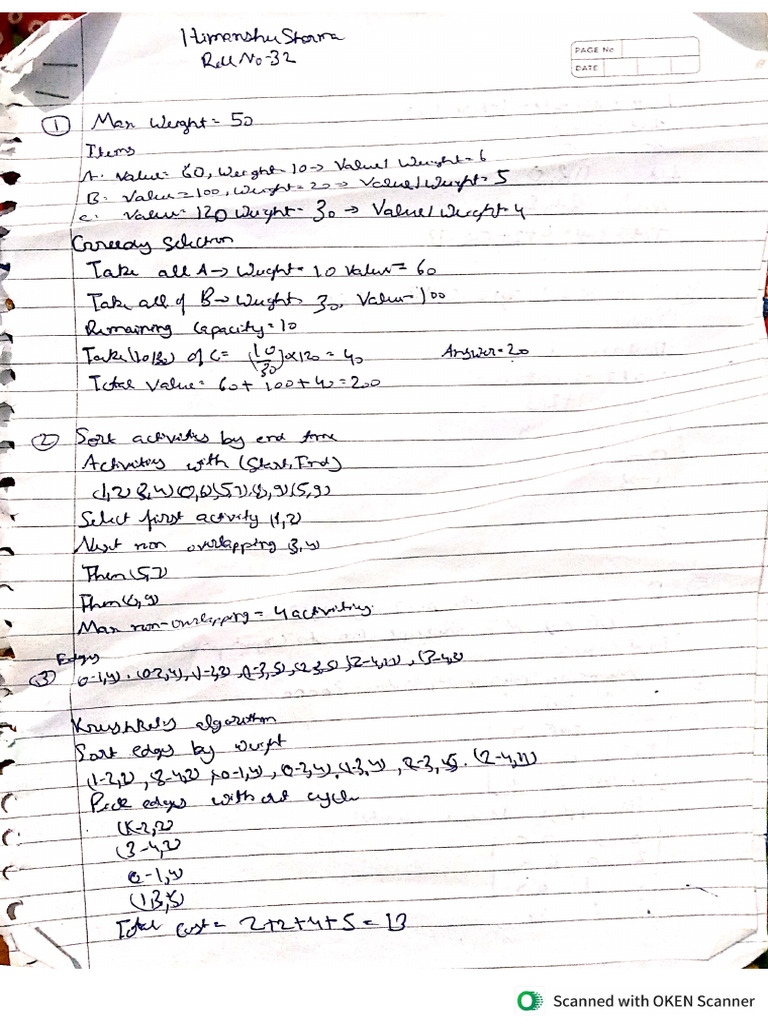 Himanshu Sharma
Roll No-32
PAGE No
DATE
① Max Weight = 50
Items
A. Value= 60, Weight= 10 → Value/Weight= 6
B. Value=100, Weight=20 → Value/Weight=5
C. Value= 120 Weight= 30 → Value/Weight= 4
Greedy Selection
Take all A → Weight= 10 Value= 60
Take all of B → Weight= 30, Value=100
Remaining Capacity=10
Take (10/30) of C= (10/30)×120 = 40 Answer=20
Total Value= 60+ 100+40=200
② Sort activities by end time
Activities with (Start, End)
(1,2)
Select first activity (1,2)
Next non overlapping (3,4)
Then (5,7)
Then
Max non-overlapping= 4 activities.
③ Edges
algorithm
Sort edges by weight
Pick edges without cycle
(3-4,2)
0-1,4)
(1,3,5)
Total cost= 2+2+4+5=13
Scanned with OKEN Scanner